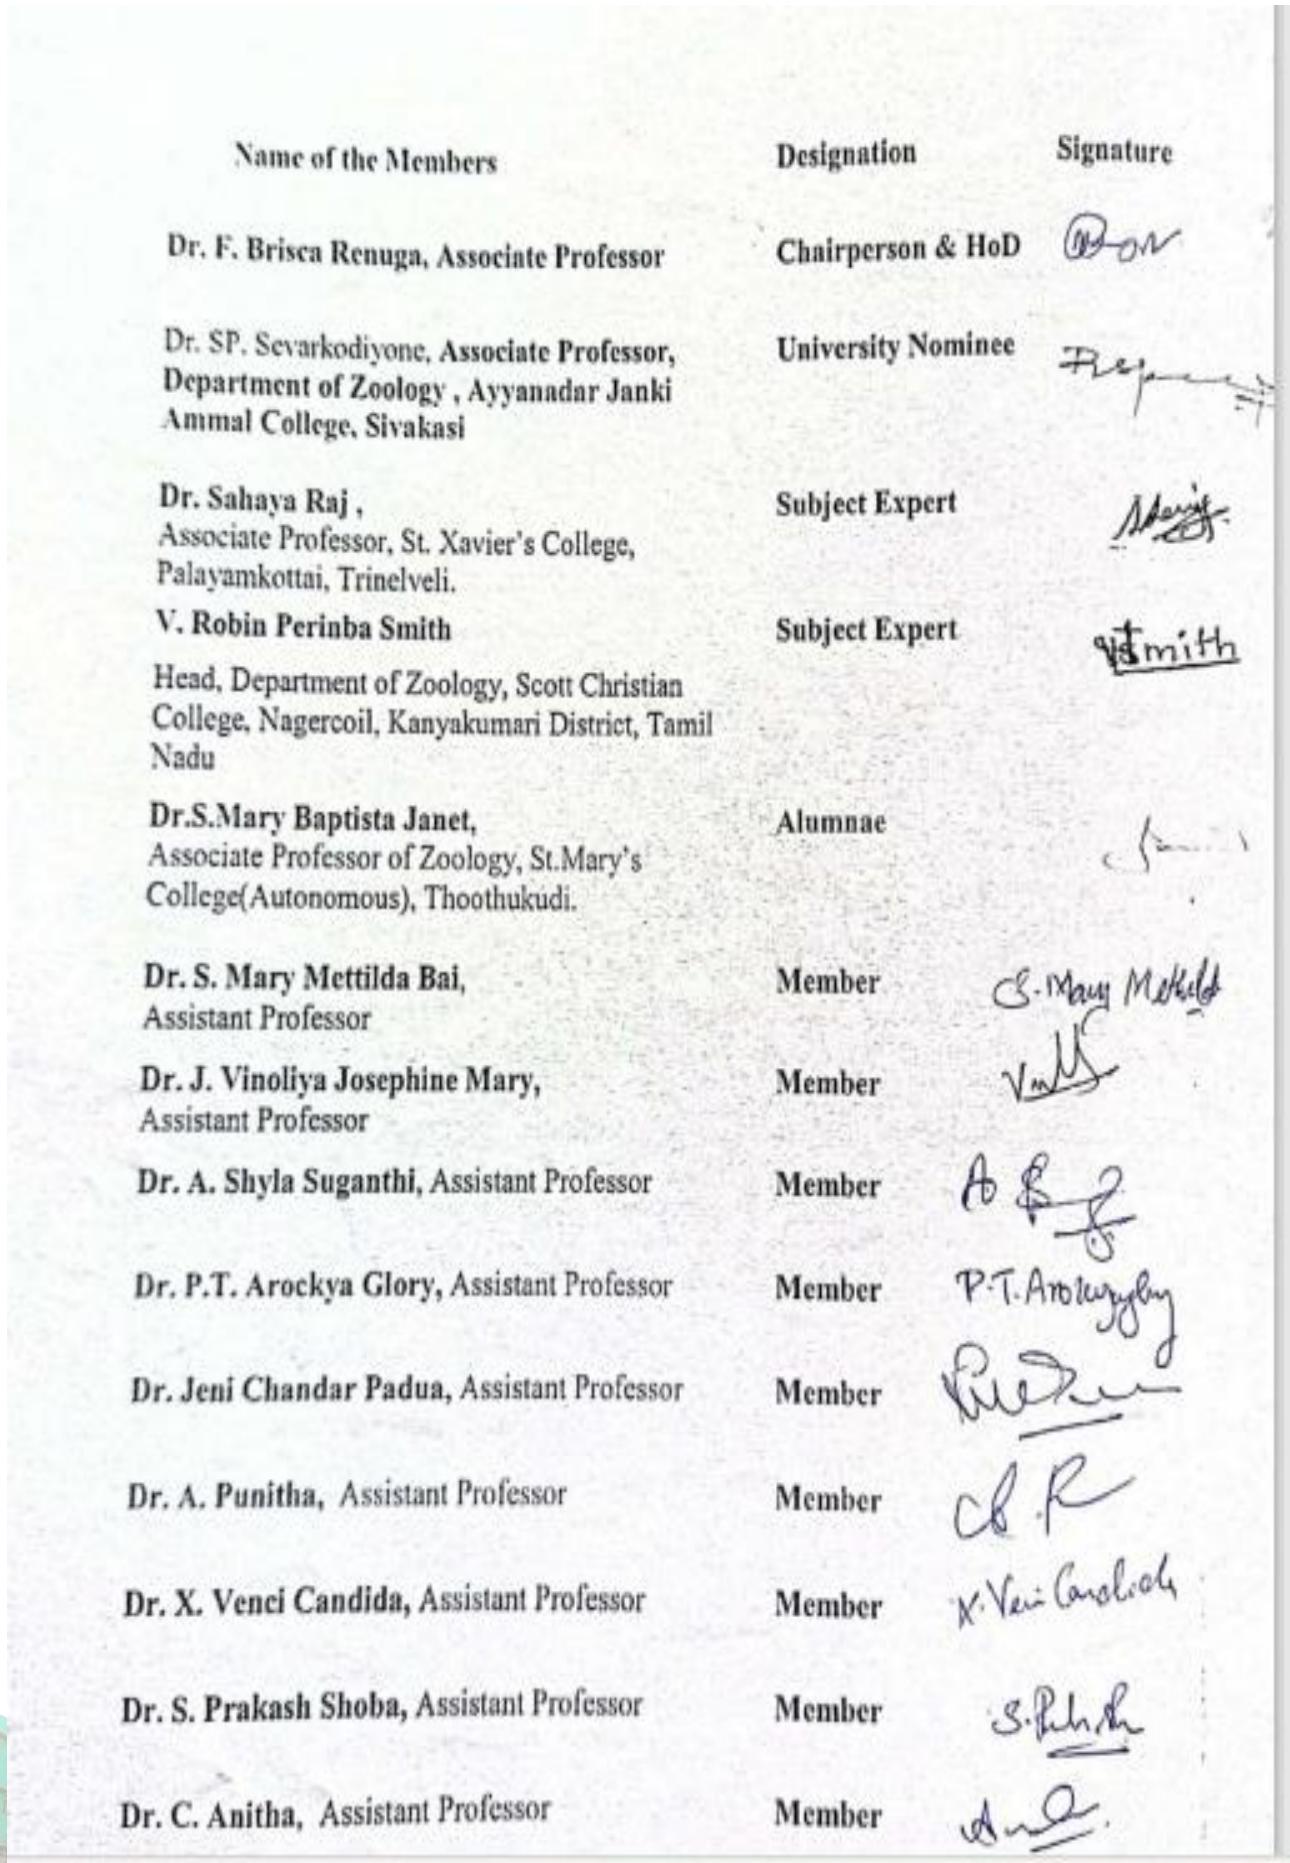 Name of the Members Designation Signature
Dr. F. Brisca Renuga, Associate Professor Chairperson & HoD
Dr. SP. Sevarkodiyone, Associate Professor, University Nominee
Department of Zoology , Ayyanadar Janki
Ammal College, Sivakasi
Dr. Sahaya Raj , Subject Expert
Associate Professor, St. Xavier's College,
Palayamkottai, Trinelveli.
V. Robin Perinba Smith Subject Expert Smith
Head, Department of Zoology, Scott Christian
College, Nagercoil, Kanyakumari District, Tamil
Nadu
Dr.S.Mary Baptista Janet, Alumnae
Associate Professor of Zoology, St.Mary's
College(Autonomous), Thoothukudi.
Dr. S. Mary Mettilda Bai, Member S. Mary
Assistant Professor
Dr. J. Vinoliya Josephine Mary, Member
Assistant Professor
Dr. A. Shyla Suganthi, Assistant Professor Member
Dr. P.T. Arockya Glory, Assistant Professor Member P.T.
Dr. Jeni Chandar Padua, Assistant Professor Member
Dr. A. Punitha, Assistant Professor Member
Dr. X. Venci Candida, Assistant Professor Member X.
Dr. S. Prakash Shoba, Assistant Professor Member S.
Dr. C. Anitha, Assistant Professor Member